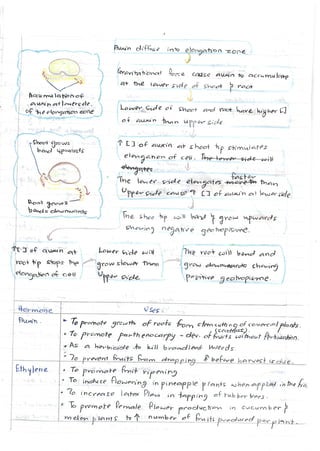 Auxin diffuse into elongation zone
Gravitational force cause auxin to accumulate
at the lower side of shoot & root
Accumulation of
auxin at lower side
of the elongation zone
Lower side of shoot and root have higher [ ]
of auxin than upper side
- Shoot grows
bend upwards
↑ [ ] of auxin at shoot tip stimulates
elongation of cell. The lower side will
elongates
faster
The lower side elongates more to than
Upper side cause ↑ [ ] of auxin at lower side
Root grows
bends downwards
The shoot tip will bend & grow upwards
showing negative geotropisme.
↑ [ ] of auxin at
root tip stops the
elongation of cell
Lower side will
grow slower than
Upper side.
The root will bend and
grow downwards showing
positive geotropisme.
Hormone
Uses:
Auxin
• To promote growth of roots from stem cutting of comercial plants.
(seedless)
• To promote parthenocarpy - dev. of fruits without fertilisation.
• As a herbicide to kill broadleaf weeds
• To prevent fruits from dropping & before harvest
Ethylene
• To promote fruit ripening
• To induse flowering in pineapple plants when applied in the
• To increase latex flow in tapping of rubber trees.
• To promote female flower production in cucumber &
melon plants to ↑ number of fruits produced per plant.